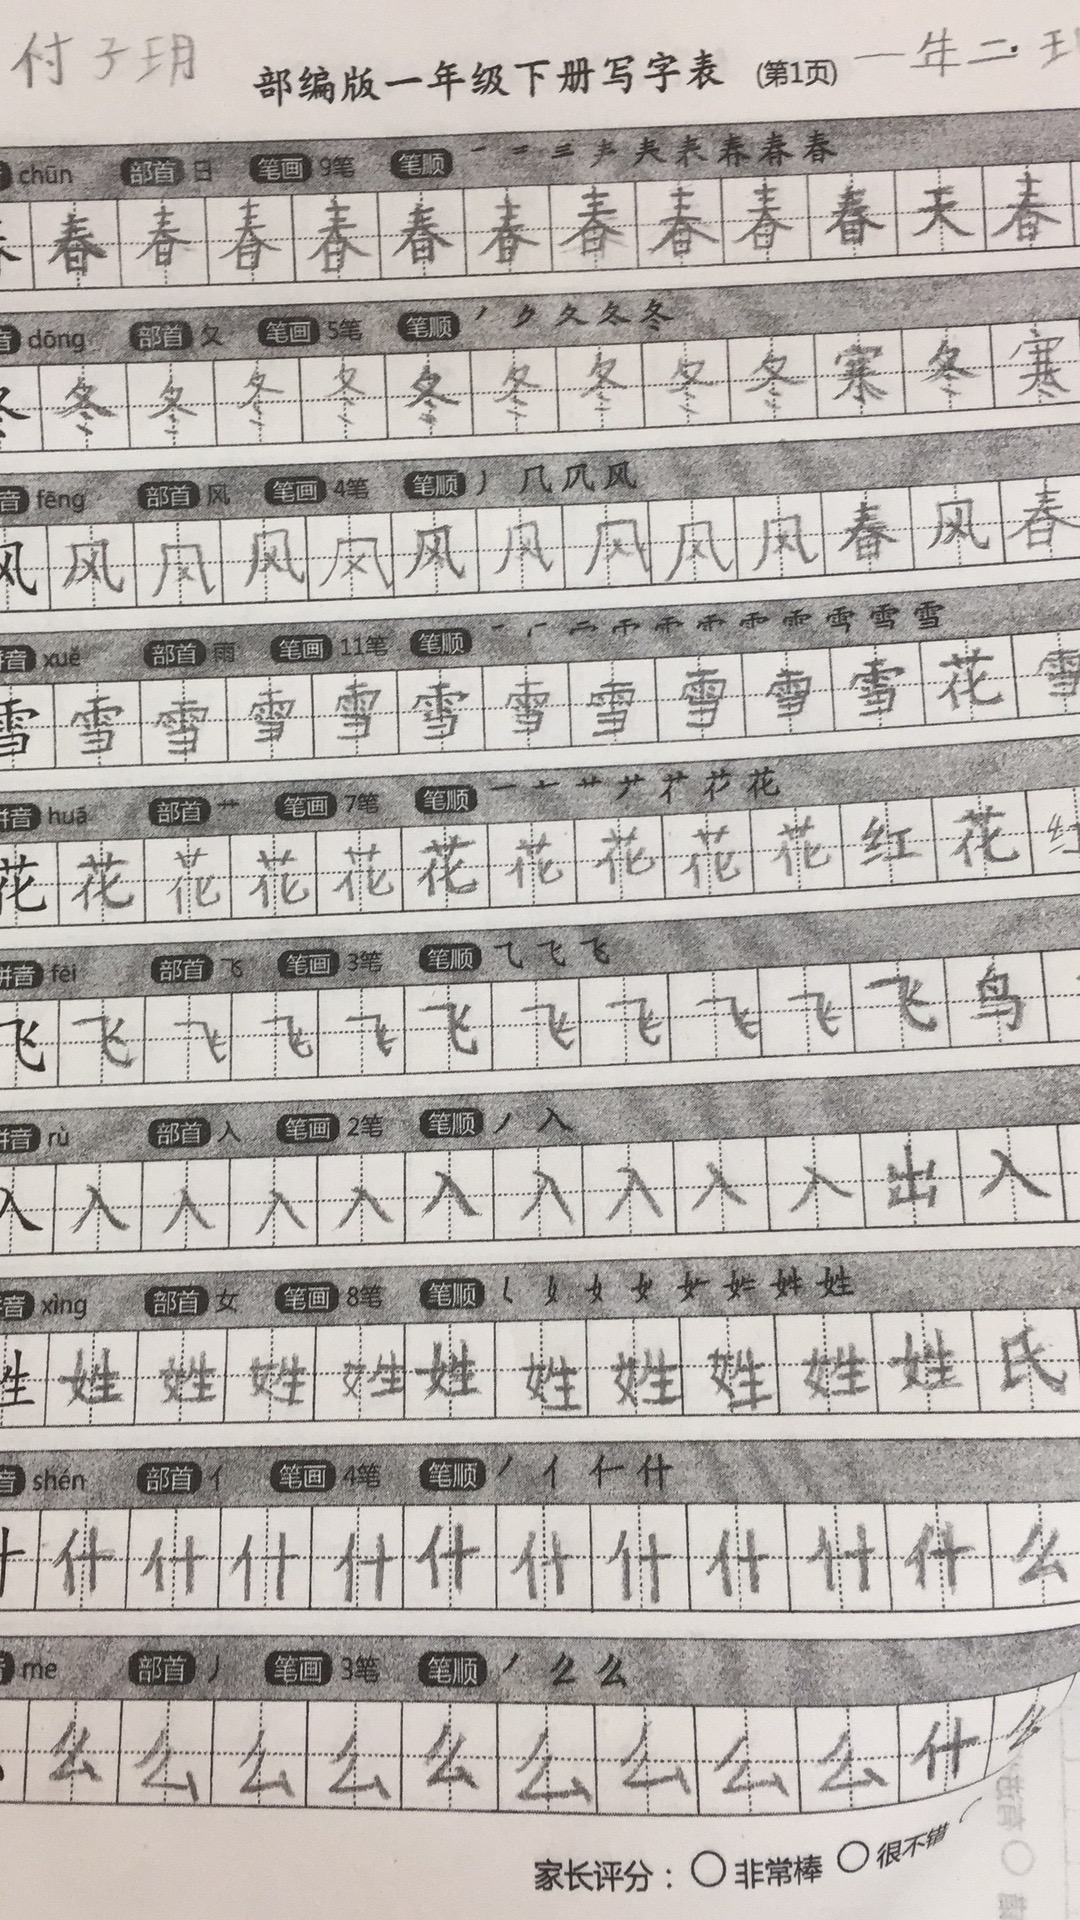 付子玥
部编版一年级下册写字表 (第1页)
一年二
chūn 部首 日 笔画 9笔 笔顺 一 二 三 夫 表 春 春 春
春 春 春 春 春 春 春 春 春 春 天 春
dōng 部首 夂 笔画 5笔 笔顺 丿 ク 夂 冬 冬
冬 冬 冬 冬 冬 冬 冬 冬 冬 冬 寒 冬 寒
音 fēng 部首 风 笔画 4笔 笔顺 丿 几 风 风
风 风 风 风 风 风 风 风 风 风 春 风 春
拼音 xuě 部首 雨 笔画 11笔 笔顺 雪 雪
雪 雪 雪 雪 雪 雪 雪 雪 雪 雪 雪 花 雪
拼音 huā 部首 艹 笔画 7笔 笔顺 一 艹 花
花 花 花 花 花 花 花 花 花 花 红 花 红
拼音 fēi 部首 飞 笔画 3笔 笔顺 乁 飞 飞
飞 飞 飞 飞 飞 飞 飞 飞 飞 飞 飞 鸟
拼音 rù 部首 入 笔画 2笔 笔顺 丿 入
入 入 入 入 入 入 入 入 入 入 出 入
拼音 xìng 部首 女 笔画 8笔 笔顺 女 姓 姓
姓 姓 姓 姓 姓 姓 姓 姓 姓 姓 姓 氏
音 shén 部首 亻 笔画 4笔 笔顺 丿 亻 仁 什
什 什 什 什 什 什 什 什 什 什 什 什 么
me 部首 丿 笔画 3笔 笔顺 丿 么 么
么 么 么 么 么 么 么 么 么 什 么
家长评分： 非常棒 很不错